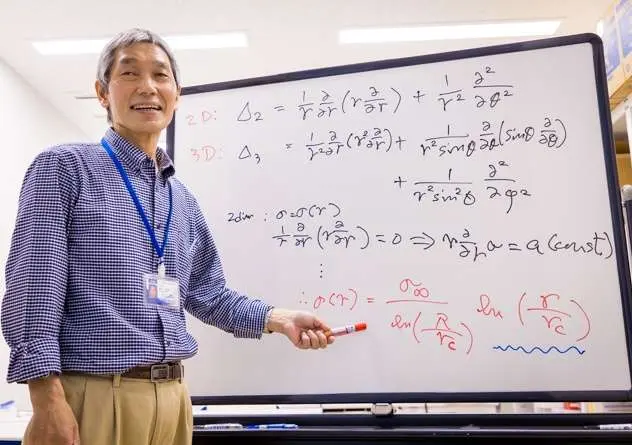 2D: Δ₂ = 1/r ∂/∂r (r ∂/∂r) + 1/r² ∂²/∂θ²
3D: Δ₃ = 1/r² ∂/∂r (r² ∂/∂r) + 1/(r² sinθ) ∂/∂θ (sinθ ∂/∂θ)
+ 1/(r² sin²θ) ∂²/∂φ²
2dim : σ=σ(r)
1/r ∂/∂r (r ∂σ/∂r) = 0 ⇒ r ∂/∂r σ = a (const.)
⋮
∴ σ(r) = σ∞/ln(R/r_c) ln (r/r_c)